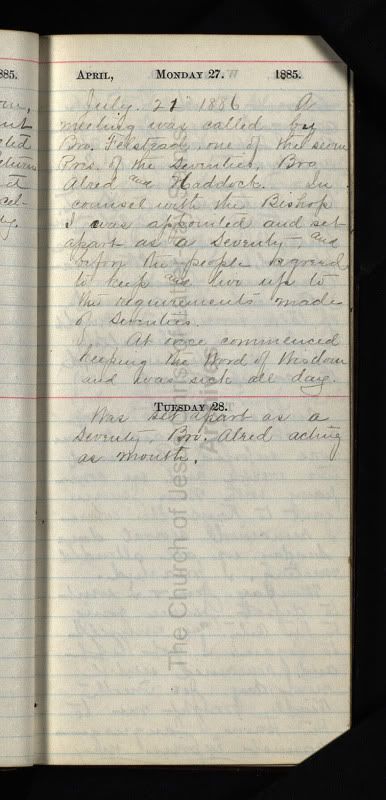 885.
APRIL, MONDAY 27. 1885.
July. 21 1886 A
meeting was called by
Bro. one of the seven
Pres. of the Seventies, Bro
Alred and Haddock. In
counsel with the Bishop
I was appointed and set
apart as a Seventy, and
before the people agreed
to keep and live up to
the requirements made
of Seventies.
At once commenced
keeping the Word of Wisdom
and was sick all day.
TUESDAY 28.
Was set apart as a
Seventy, Bro. Alred acting
as mouth.
The Church of Jesus Christ